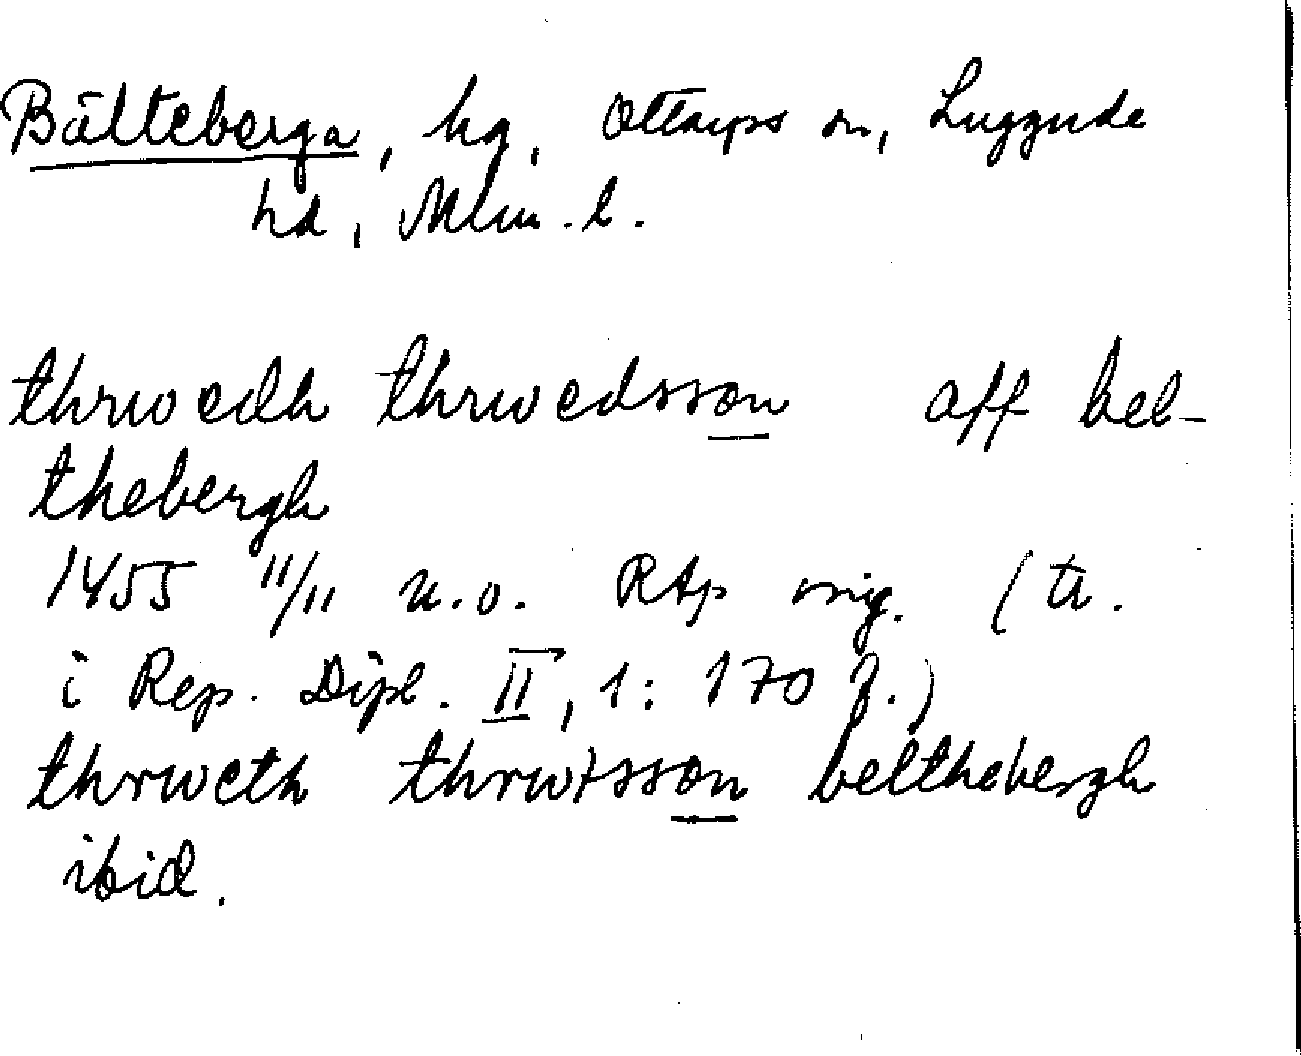 Bälteberga, hg, Ottarps sn, Luggude
hd, Mlm. l.
thrwedh thrwedsson aff bel-
thebergh
1455 11/11 u.o. RAp orig. (tr.
i Rep. Dipl. II, 1: 170 f.)
thrweth thrwtsson belthebergh
ibid.